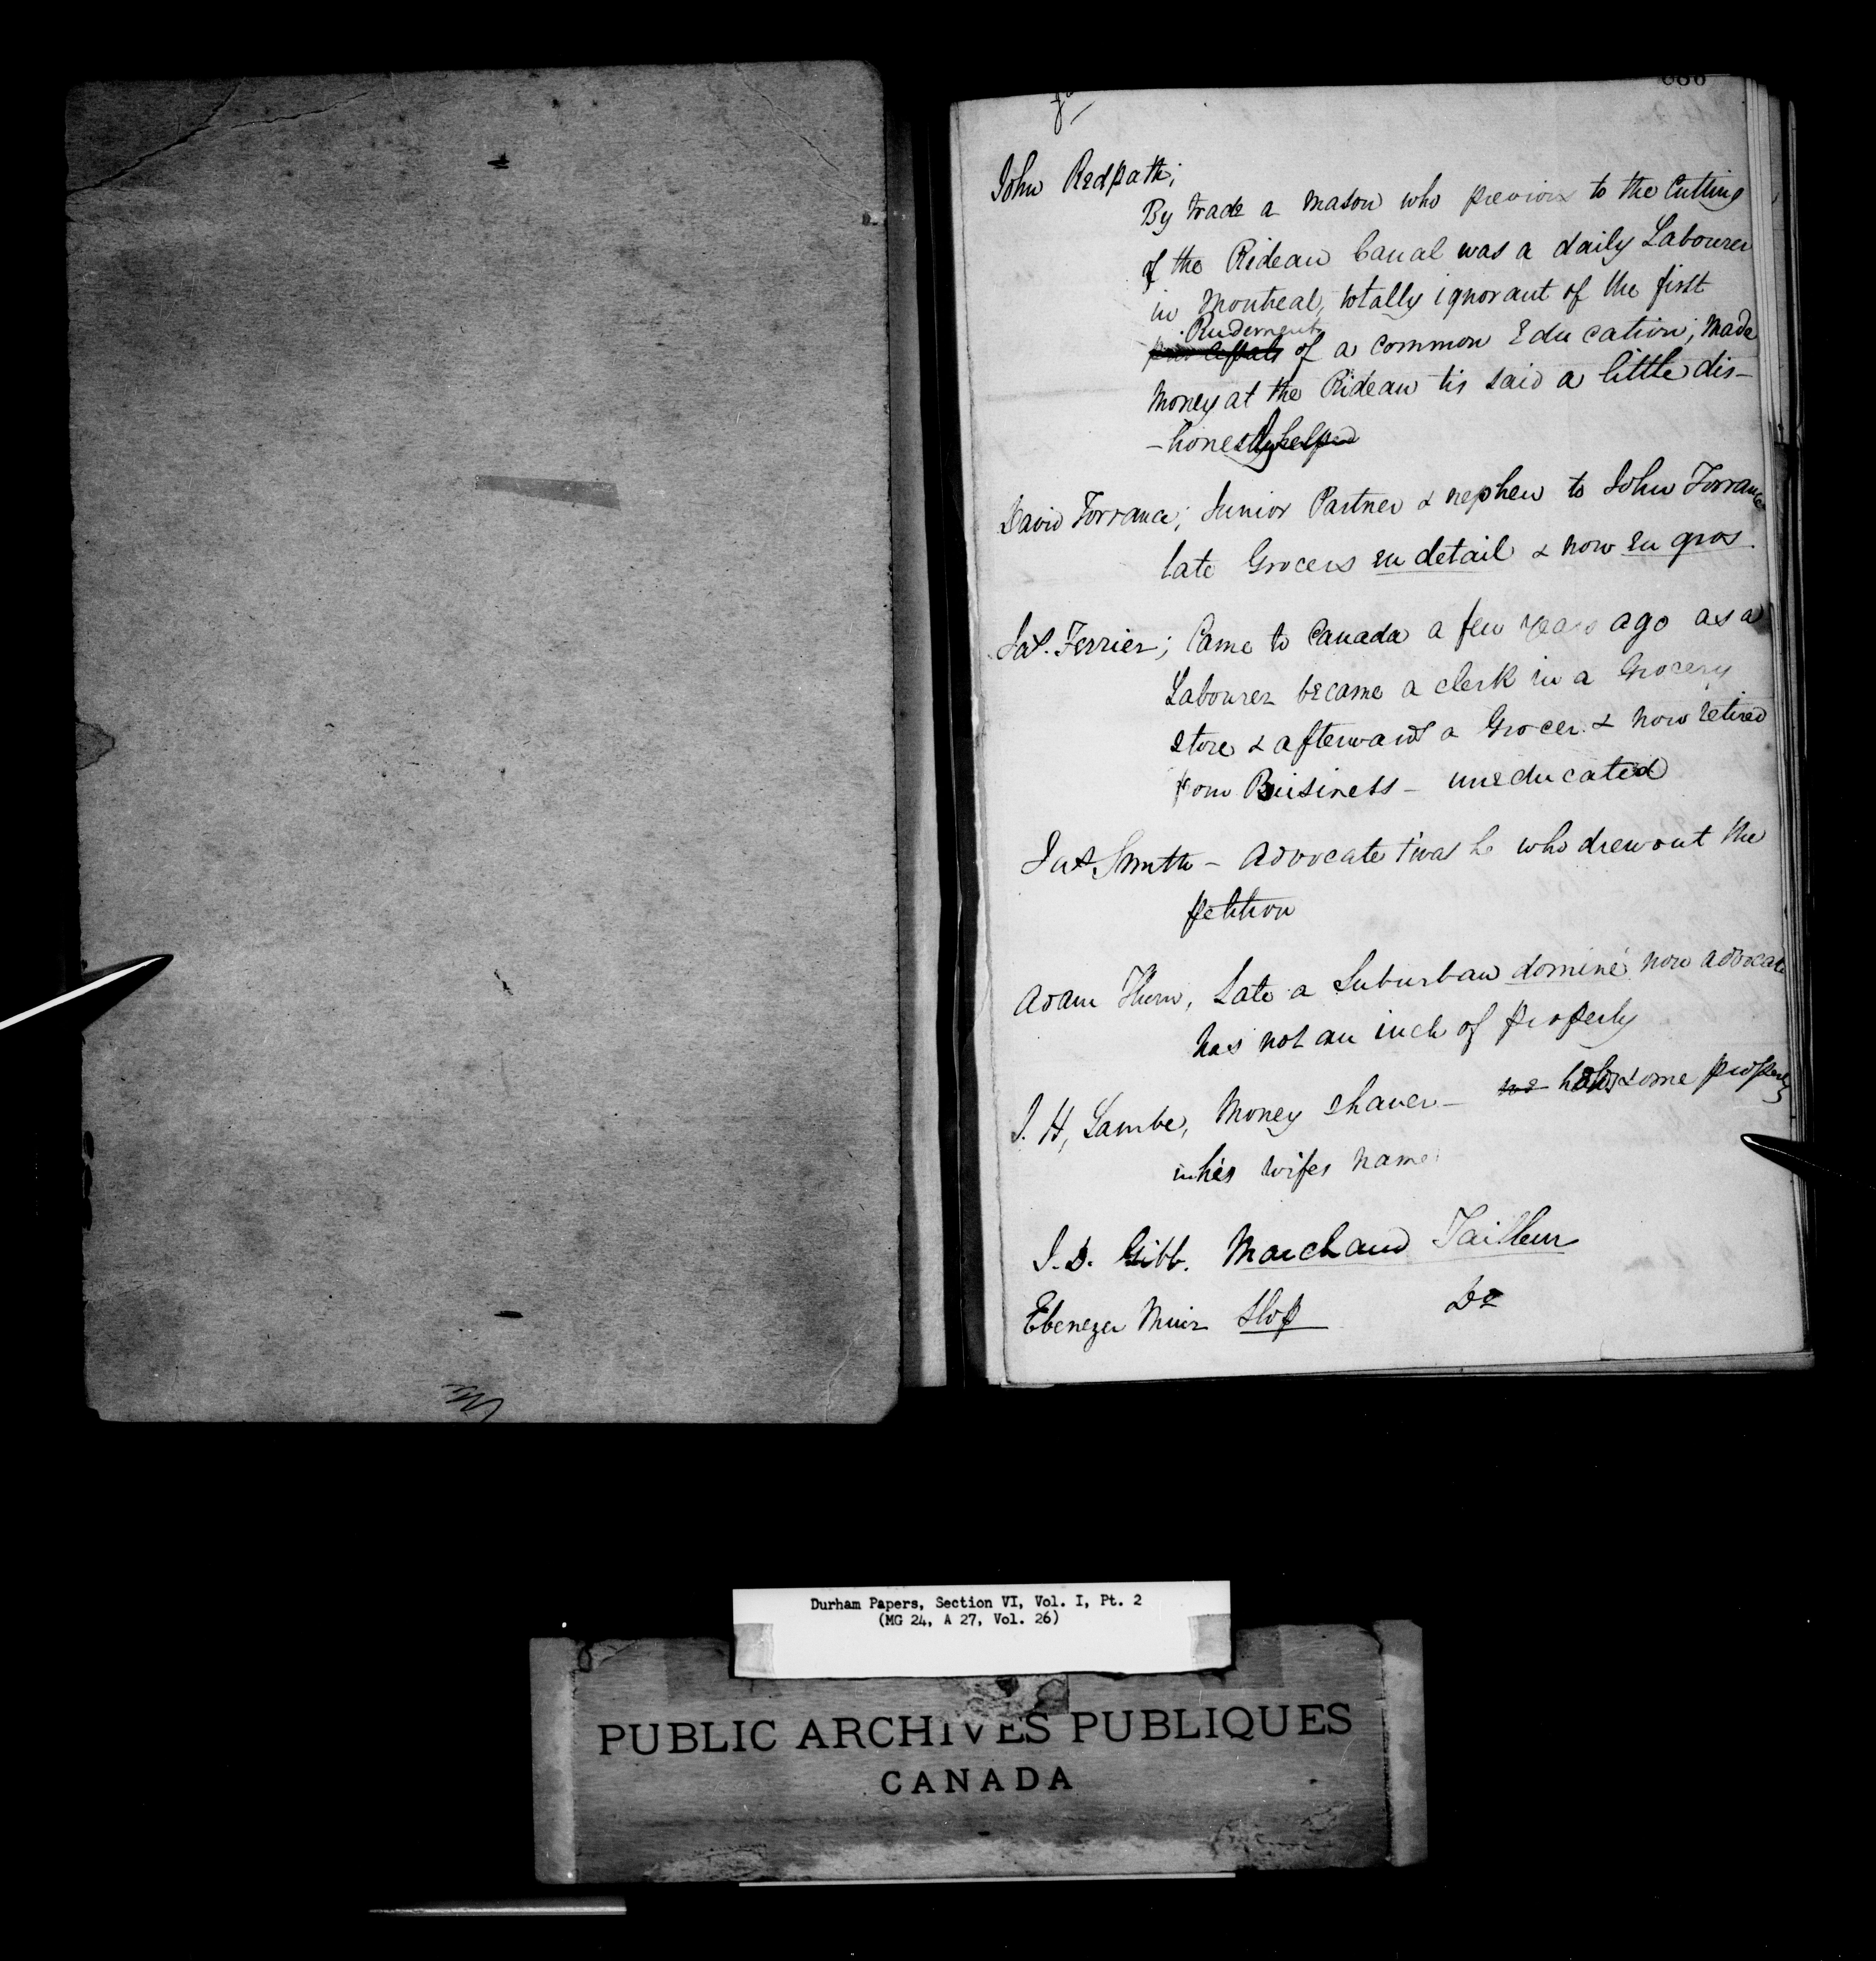 John Redpath;
By trade a mason who previous to the Cutting
of the Rideau Canal was a daily Labourer
in Montreal, totally ignorant of the first
Rudements
of a common Education; Made
Money at the Rideau tis said a little dis-
-honestly helped
David Torrance; Junior Partner & nephew to John Torrance
late Grocers en detail & now en gros.
Jas. Ferrier; Came to Canada a few years ago as a
Labourer became a clerk in a Grocery
store & afterwards a Grocer & now retired
from Buisiness - uneducated
Jas. Smith - Advocate t'was he who drew out the
petition
Adam Thom, Late a Suburban dominé now advocate
has not an inch of property
J. H, Lambe, Money shaver - holds some property
in his wifes name
J. D. Gibb. Marchand Tailleur
Ebenezer Muir Slop Do
Durham Papers, Section VI, Vol. I, Pt. 2
(MG 24, A 27, Vol. 26)
PUBLIC ARCHIVES PUBLIQUES
CANADA